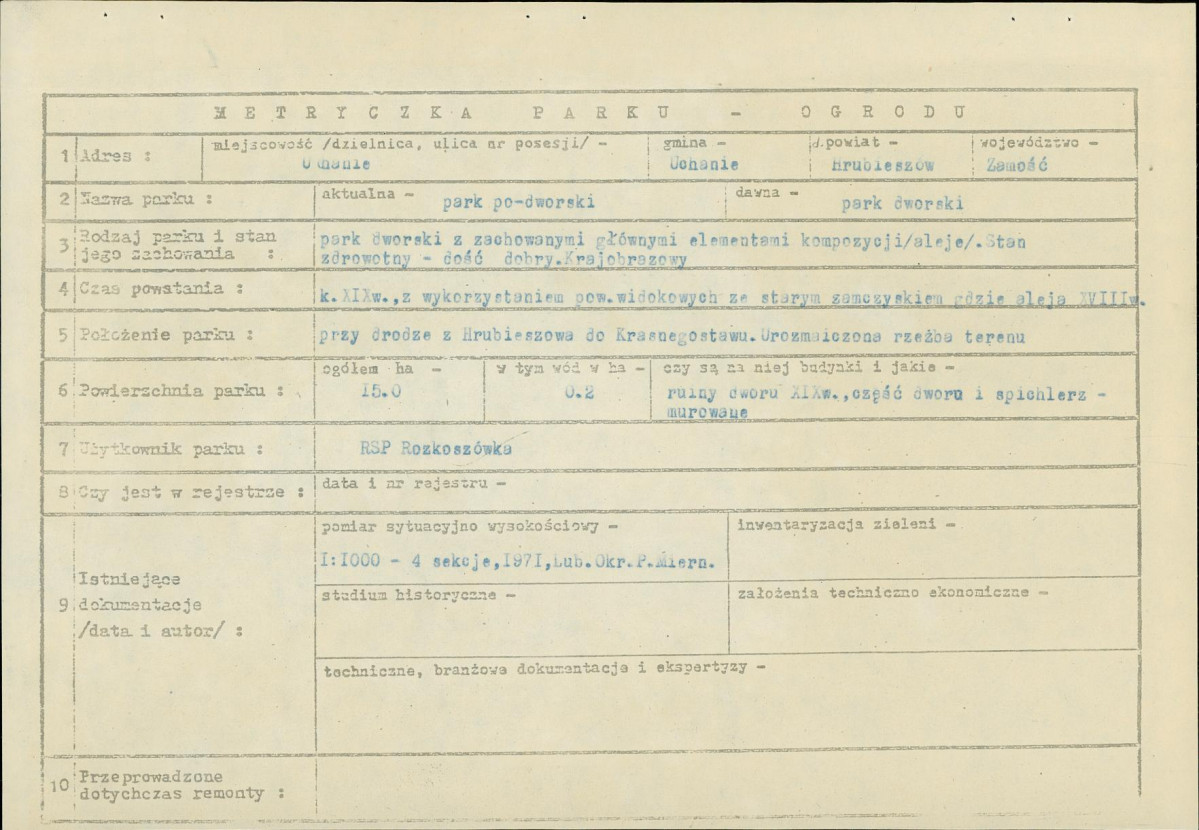 METRYCZKA PARKU - OGRODU
1 Adres : miejscowość /dzielnica, ulica nr posesji/ - gmina - d.powiat - województwo -
Uchanie Uchanie Hrubieszów Zamość
2 Nazwa parku : aktualna - park po-dworski dawna - park dworski
3 Rodzaj parku i stan jego zachowania :
park dworski z zachowanymi głównymi elementami kompozycji/aleje/.Stan
zdrowotny - dość dobry.Krajobrazowy
4 Czas powstania : k.XIXw.,z wykorzystaniem pow.widokowych ze starym zamczyskiem gdzie aleja XVIIIw.
5 Położenie parku : przy drodze z Hrubieszowa do Krasnegostawu.Urozmaiczona rzeźba terenu
6 Powierzchnia parku : ogółem ha - w tym wód w ha - czy są na niej budynki i jakie -
15.0 0.2 ruiny dworu XIXw.,część dworu i spichlerz -
murowane
7 Użytkownik parku : RSP Rozkoszówka
8 Czy jest w rejestrze : data i nr rejestru -
9 Istniejące
dokumentacje
/data i autor/ :
pomiar sytuacyjno wysokościowy - inwentaryzacja zieleni -
I:I000 - 4 sekcje,I97I,Lub.Okr.P.Miern.
studium historyczne - założenia techniczno ekonomiczne -
techniczne, branżowe dokumentacje i ekspertyzy -
10 Przeprowadzone
dotychczas remonty :